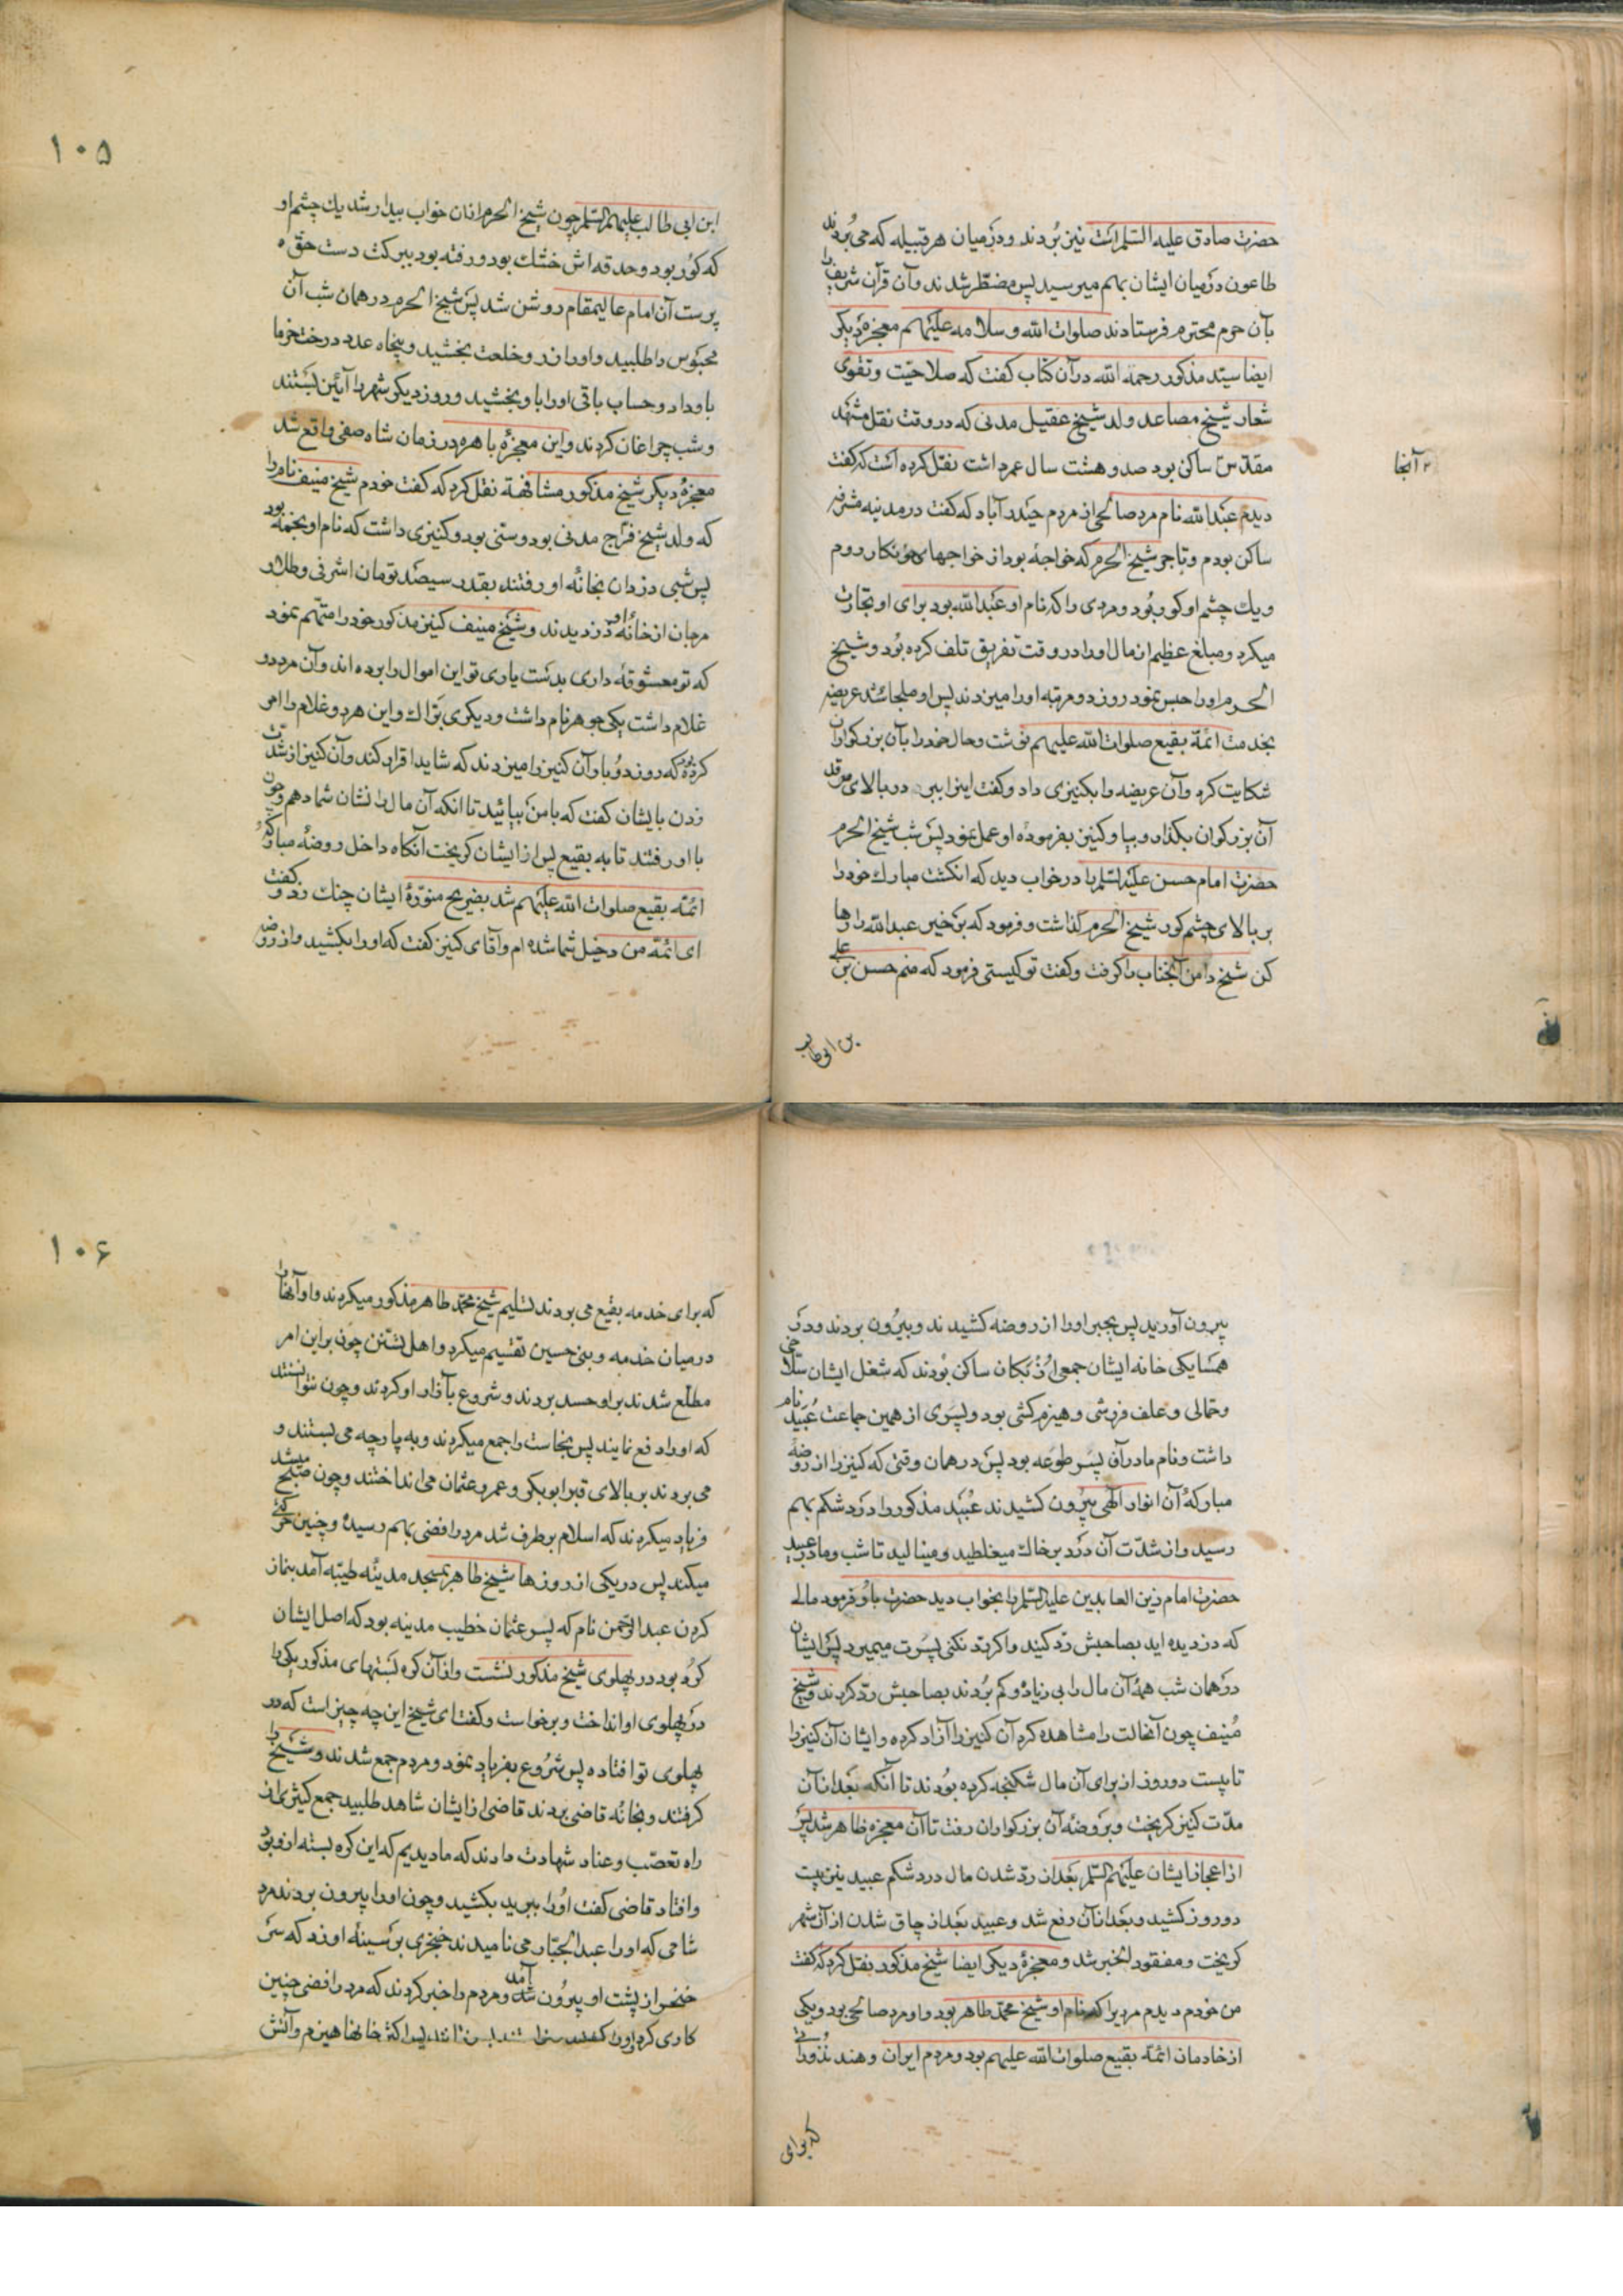 حضرت صادق علیه السلام است نیز بُردند و در میان هر قبیله که می بُردند
طاعون در میان ایشان بهم میرسید پس مضطّر شدند و آن قرآن شریف را
بآن حرم محترم فرستادند صلوات الله و سلامه علیهم معجزهٔ دیگر
ایضا سیّد مذکور رحمه الله در آن کتاب گفت که صلاحیّت و تقوی
شعار شیخ مصاعد ولد شیخ عقیل مدنی که در وقت نقل مشهد
مقدّس ساکن بود صد و هشت سال عمر داشت نقل کرده است که گفت
۲ آنجا
دیدم عبدالله نام مرد صالحی از مردم حیدر آباد که گفت در مدینه مشرفه
ساکن بودم و تاجر شیخ الحرم که خواجهٔ بود از خواجهای خونکار روم
و یک چشم او کور بُود و مردی را که نام او عبدالله بود برای او تجارت
میکرد و مبلغ عظیم از مال او را در وقت تفریق تلف کرده بُود و شیخ
الحرم او را حبس نمود روز دو مرتبه او را میزدند پس او ملجا شد عریضه
بخدمت ائمّهٔ بقیع صلوات الله علیهم نوشت و حال خود را بآن بزرگواران
شکایت کرد و آن عریضه را بکنیزی داد و گفت اینرا ببر در بالای مرقد
آن بزرگوران بگذار و بیا و کنیز بفرمودهٔ او عمل نمود پس شب شیخ الحرم
حضرت امام حسن علیه السلم را در خواب دید که انگشت مبارک خود را
بر بالای چشم کور شیخ الحرم گذاشت و فرمود که بر خیز عبدالله را رها
کن شیخ دامن آنجناب را گرفت و گفت تو کیستی فرمود که منم حسن بن علی
بن ابی طالب
۱۰۵
ابن ابی طالب علیهم السلم چون شیخ الحرم از آن خواب بیدار شد یک چشم او
که کُور بود و حدقه اش خشک بود و رفته بود ببرکت دست حق
پرست آن امام عالیمقام روشن شد پس شیخ الحرم در همان شب آن
محبُوس را طلبید و او را زر و خلعت بخشید و پنجاه عدد درخت خرما
باو داد و حساب باقی او را باو بخشید و روز دیگر شهر را آیین بستند
و شب چراغان کردند و این معجزهٔ باهره در زمان شاه صفی واقع شد
معجزهٔ دیگر شیخ مذکور مشافهة نقل کرد که گفت خودم شیخ منیف نام را
که ولد شیخ فرّج مدنی بود و سنّی بود و کنیزی داشت که نام او بخمه بود
پس شبی دزدان بخانهٔ او رفتند بقدر سیصد تومان اشرفی و طلا و
مرجان از خانهٔ او دزدیدند و شیخ منیف کنیز مذکور خود را متهّم نمود
که تو معشوقهٔ داری بدست یاری تو این اموال را برده اند و آن مرد دو
غلام داشت یکی جوهر نام داشت و دیگری بتراک و این هر دو غلام را امر
کرده بود که روز دو بار آن کنیز را میزدند که شاید اقرار کند و آن کنیز از شدت
زدن بایشان گفت که با من بیائید تا انکه آن مال را نشان شما دهم و چون
با او رفتند تا به بقیع پس از ایشان گریخت آنگاه داخل روضهٔ مبارکه
ائمّهٔ بقیع صلوات الله علیهم شد بضریح منوّرهٔ ایشان چنک زد و گفت
ای ائمّه من دخیل شما شده ام و آقای کنیز گفت که او را بکشید و از روضه
بیرون آورید پس بجبر او را از روضه کشیدند و بیرُون بردند و در
همسایگی خانه ایشان جمعی از نُزبکان ساکن بُودند که شغل ایشان سلاخی
و حمّالی و علف فروشی و هیزم کشی بود و پسَری از همین جماعت عُبَید نام
داشت و نام مادر آن پسر طوعه بود پس در همان وقتی که کنیز را از روضهٔ
مبارکهٔ آن انوار الهی بیرُون کشیدند عُبَید مذکور را دَرد شکم بهم
رسید و از شدّت آن درد بر خاک میغلطید و مینالید تا شب و مادر عبید
حضرت امام زین العابدین علیه السّلم را بخواب دید حضرت باو فرمود مالی
که دزدیده اید بصاحبش ردّ کنید و اگر ردّ نکنی پسَرت میمیرد پس ایشان
در همان شب همهٔ آن مال را بی زیاد و کم بُردند بصاحبش ردّ کردند و شیخ
مُنیف چون آنحالت را مشاهده کرد آن کنیز را آزاد کرده و ایشان آن کنیز را
تا بیست دو روز از برای آن مال شکنجه کرده بُودند تا آنکه بَعد از آن
مدّت کنیز گریخت و برَوضهٔ آن بزرگواران رفت تا آن معجزه ظاهر شد پس
از اعجاز ایشان علیهم السّلم بعد از ردّ شدن مال درد شکم عبید نیز بیست
دو روز کشید و بعد از آن رفع شد و عبید بعد از چاق شدن از آن شهر
گریخت و مفقود الخبر شد و معجزهٔ دیگر ایضا شیخ مذکور نقل کرد که گفت
من خودم دیدم مردیرا که نام او شیخ محمّد طاهر بود و او مرد صالحی بود و یکی
از خادمان ائمّهٔ بقیع صلوات الله علیهم بود و مردم ایران و هند نُذوراتی
که برای
۱۰۶
که برای خدمه بقیع می بردند تسلیم شیخ محمّد طاهر مذکور میکردند و او آنها را
در میان خدمه و بنی حسین تقسیم میکرد و اهل تسنّن چون بر این امر
مطلّع شدند بر او حسد بردند و شروع بآزار او کردند و چون نتوانستند
که او را دفع نمایند پس نجاست را جمع میکردند و به پارچه می بستند و
می بردند بر بالای قبر ابوبکر و عمر و عثمان می انداختند و چون صبح میشد
فریاد میکردند که اسلام بر طرف شد مرد رافضی بهم رسیده و چنین حرکتی
میکند پس در یکی از روزها شیخ طاهر بمسجد مدینه طیّبه آمد بنماز
کردن عبدالرّحمن نام که پسر عثمان خطیب مدینه بود که اصل ایشان
کرد بود در پهلوی شیخ مذکور نشست و از آن کره بستهای مذکور یکی را
در پهلوی او انداخت و برخواست و گفت ای شیخ این چه چیز است که در
پهلوی تو افتاده پس شروع بفریاد نمود و مردم جمع شدند و شیخ را
گرفتند و بخانهٔ قاضی بردند قاضی از ایشان شاهد طلبید جمع کثیری از
راه تعصّب و عناد شهادت دادند که ما دیدیم که این کره بسته از و بود
و افتاد قاضی گفت او را ببرید بکشید و چون او را بیرون بردند مرد
شامی که او را عبدالجبّار می نامیدند خنجری بر سینهٔ او زد که سر
خنجر از پشت او بیرُون آمد و مردم را خبر کردند که مرد رافضی چنین
کاری کرد و اکثر خانها هیزم و آتش